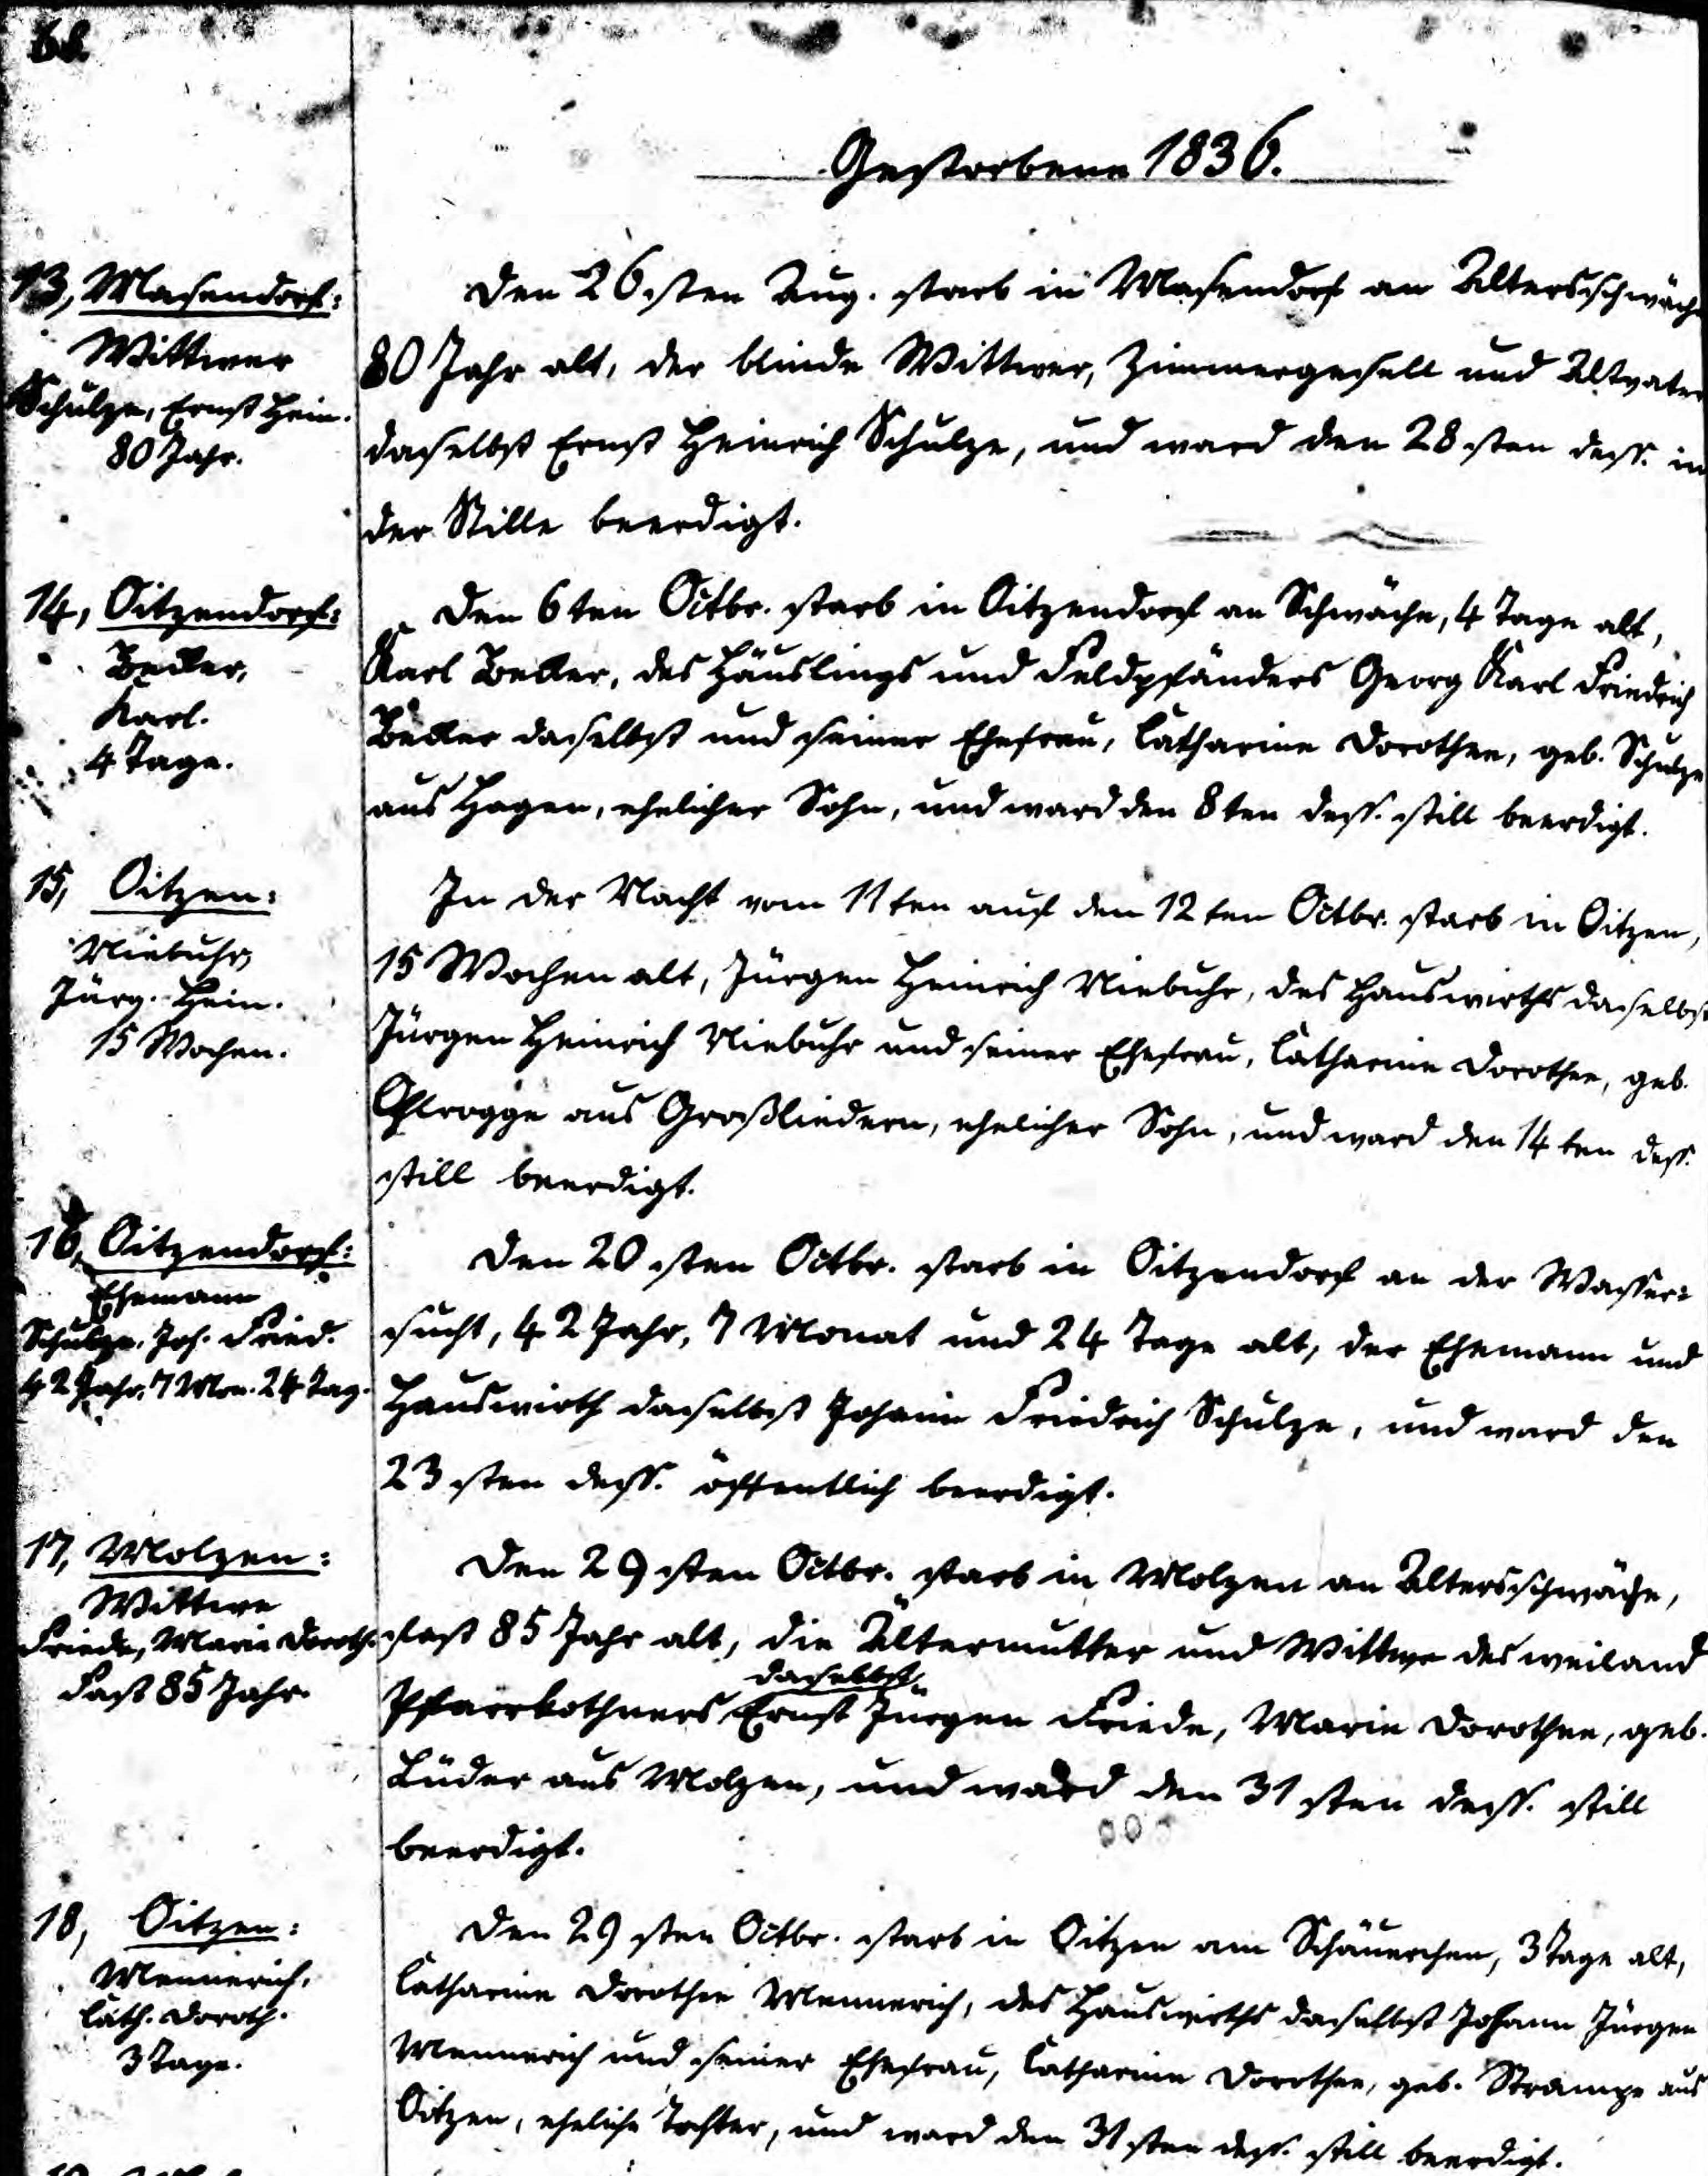 Gestorbene 1836.
13, Masendorf:
Wittwer
Schulze, Ernst Hein.
80 Jahr.
Den 26sten Aug. starb in Masendorf an Altersschwäche
80 Jahr alt, der blinde Wittwer, Zimmergesell und Altvater
daselbst Ernst Heinrich Schulze, und ward den 28sten dess. in
der Stille beerdigt.
14, Oitzendorf:
Becker,
Karl.
4 Tage.
Den 6ten Octbr. starb in Oitzendorf an Schwäche, 4 Tage alt,
Karl Becker, des Häuslings und Feldpfänders Georg Karl Friedrich
Becker daselbst und seiner Ehefrau, Catharine Dorothee, geb. Schulze
aus Hagen, ehelicher Sohn, und ward den 8ten dess. still beerdigt.
15, Oitzen:
Niebuhr,
Jürg. Hein.
15 Wochen.
In der Nacht vom 11ten auf den 12ten Octbr. starb in Oitzen,
15 Wochen alt, Jürgen Heinrich Niebuhr, des Hauswirths daselbst
Jürgen Heinrich Niebuhr und seiner Ehefrau, Catharine Dorothee, geb.
Ohlrogge aus Großliedern, ehelicher Sohn, und ward den 14ten dess.
still beerdigt.
16, Oitzendorf:
Ehemann
Schulze, Joh. Fried.
42 Jahr, 7 Mon. 24 Tag.
Den 20sten Octbr. starb in Oitzendorf an der Wasser=
sucht, 42 Jahr, 7 Monat und 24 Tage alt, der Ehemann und
Hauswirth daselbst Johann Friedrich Schulze, und ward den
23sten dess. öffentlich beerdigt.
17, Molzen:
Wittwe
Friede, Marie Doroth.
Fast 85 Jahr.
Den 29sten Octbr. starb in Molzen an Altersschwäche,
fast 85 Jahr alt, die Ältermutter und Wittwe des weiland
Pfarrkothners daselbst Ernst Jürgen Friede, Marie Dorothee, geb.
Lüder aus Molzen, und ward den 31sten dess. still
beerdigt.
18, Oitzen:
Mennerich,
Cath. Doroth.
3 Tage.
Den 29sten Octbr. starb in Oitzen am Schäuerchen, 3 Tage alt,
Catharine Dorothee Mennerich, des Hauswirths daselbst Johann Jürgen
Mennerich und seiner Ehefrau, Catharine Dorothee, geb. Strampe aus
Oitzen, eheliche Tochter, und ward den 31sten dess. still beerdigt.